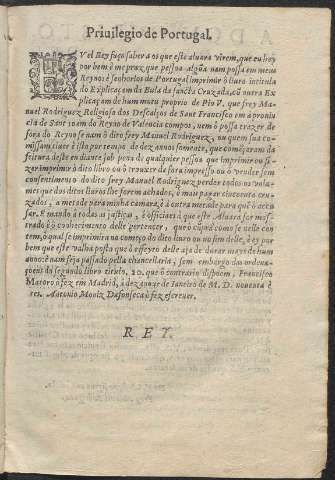 Priuilegio de Portugal.
EV el Rey faço saber a os que este aluara virem, que eu hey
por bem & me praz, que pessoa algũa nam possa em meus
Reynos & senhorios de Portugal imprimir o liuro intitula
do Explicaçam da Bula da sancta Cruzada, cõ outra Ex
plicaçam de hum motu proprio de Pio V. que frey Ma
nuel Rodriguez Religioso dos Descalços de Sant Francisco em a prouin
cia de Sant Ioam do Reyno de Valencia compos, nem o possa trazer de
fora do Reyno se nam o dito frey Manuel Rodriguez, ou quem sua co
missam tiuer & isto por tempo de dez annos somente, que começaram da
feitura deste en diante sob pena de qualquer pessoa que imprimir ou fi-
zer imprimir o dito liuro ou o trouxer de fora impresso ou o vender sem
consentimento do dito frey Manuel Rodriguez perder todos os volu-
mes que dos ditos liuros lhe forem achados, & mais pagar cincoenta cru-
zados, a metade pera minha camara, & a outra metade pera quẽ o acu
sar. E mando à todas as justiças, & officiaes à que este Aluara for mos-
trado & o conhecimento delle pertencer, que o cũpra como se nelle con-
tem, o qual se imprimira no começo do dito liuro ou no fim delle, & ey por
bem que este valha posto que o effeyto delle aja de durar mays de hum
anno: & nam seja passado pella chancellaria, sem embargo das ordena-
çoens do segundo libro titulo, 20. que o contrario dispoem, Francisco
Matoro o fez em Madrid, à dez de Ianeiro de M. D. nouenta &
tres. Antonio Moniz Dafonseca o fez escreuer.
R E Y.